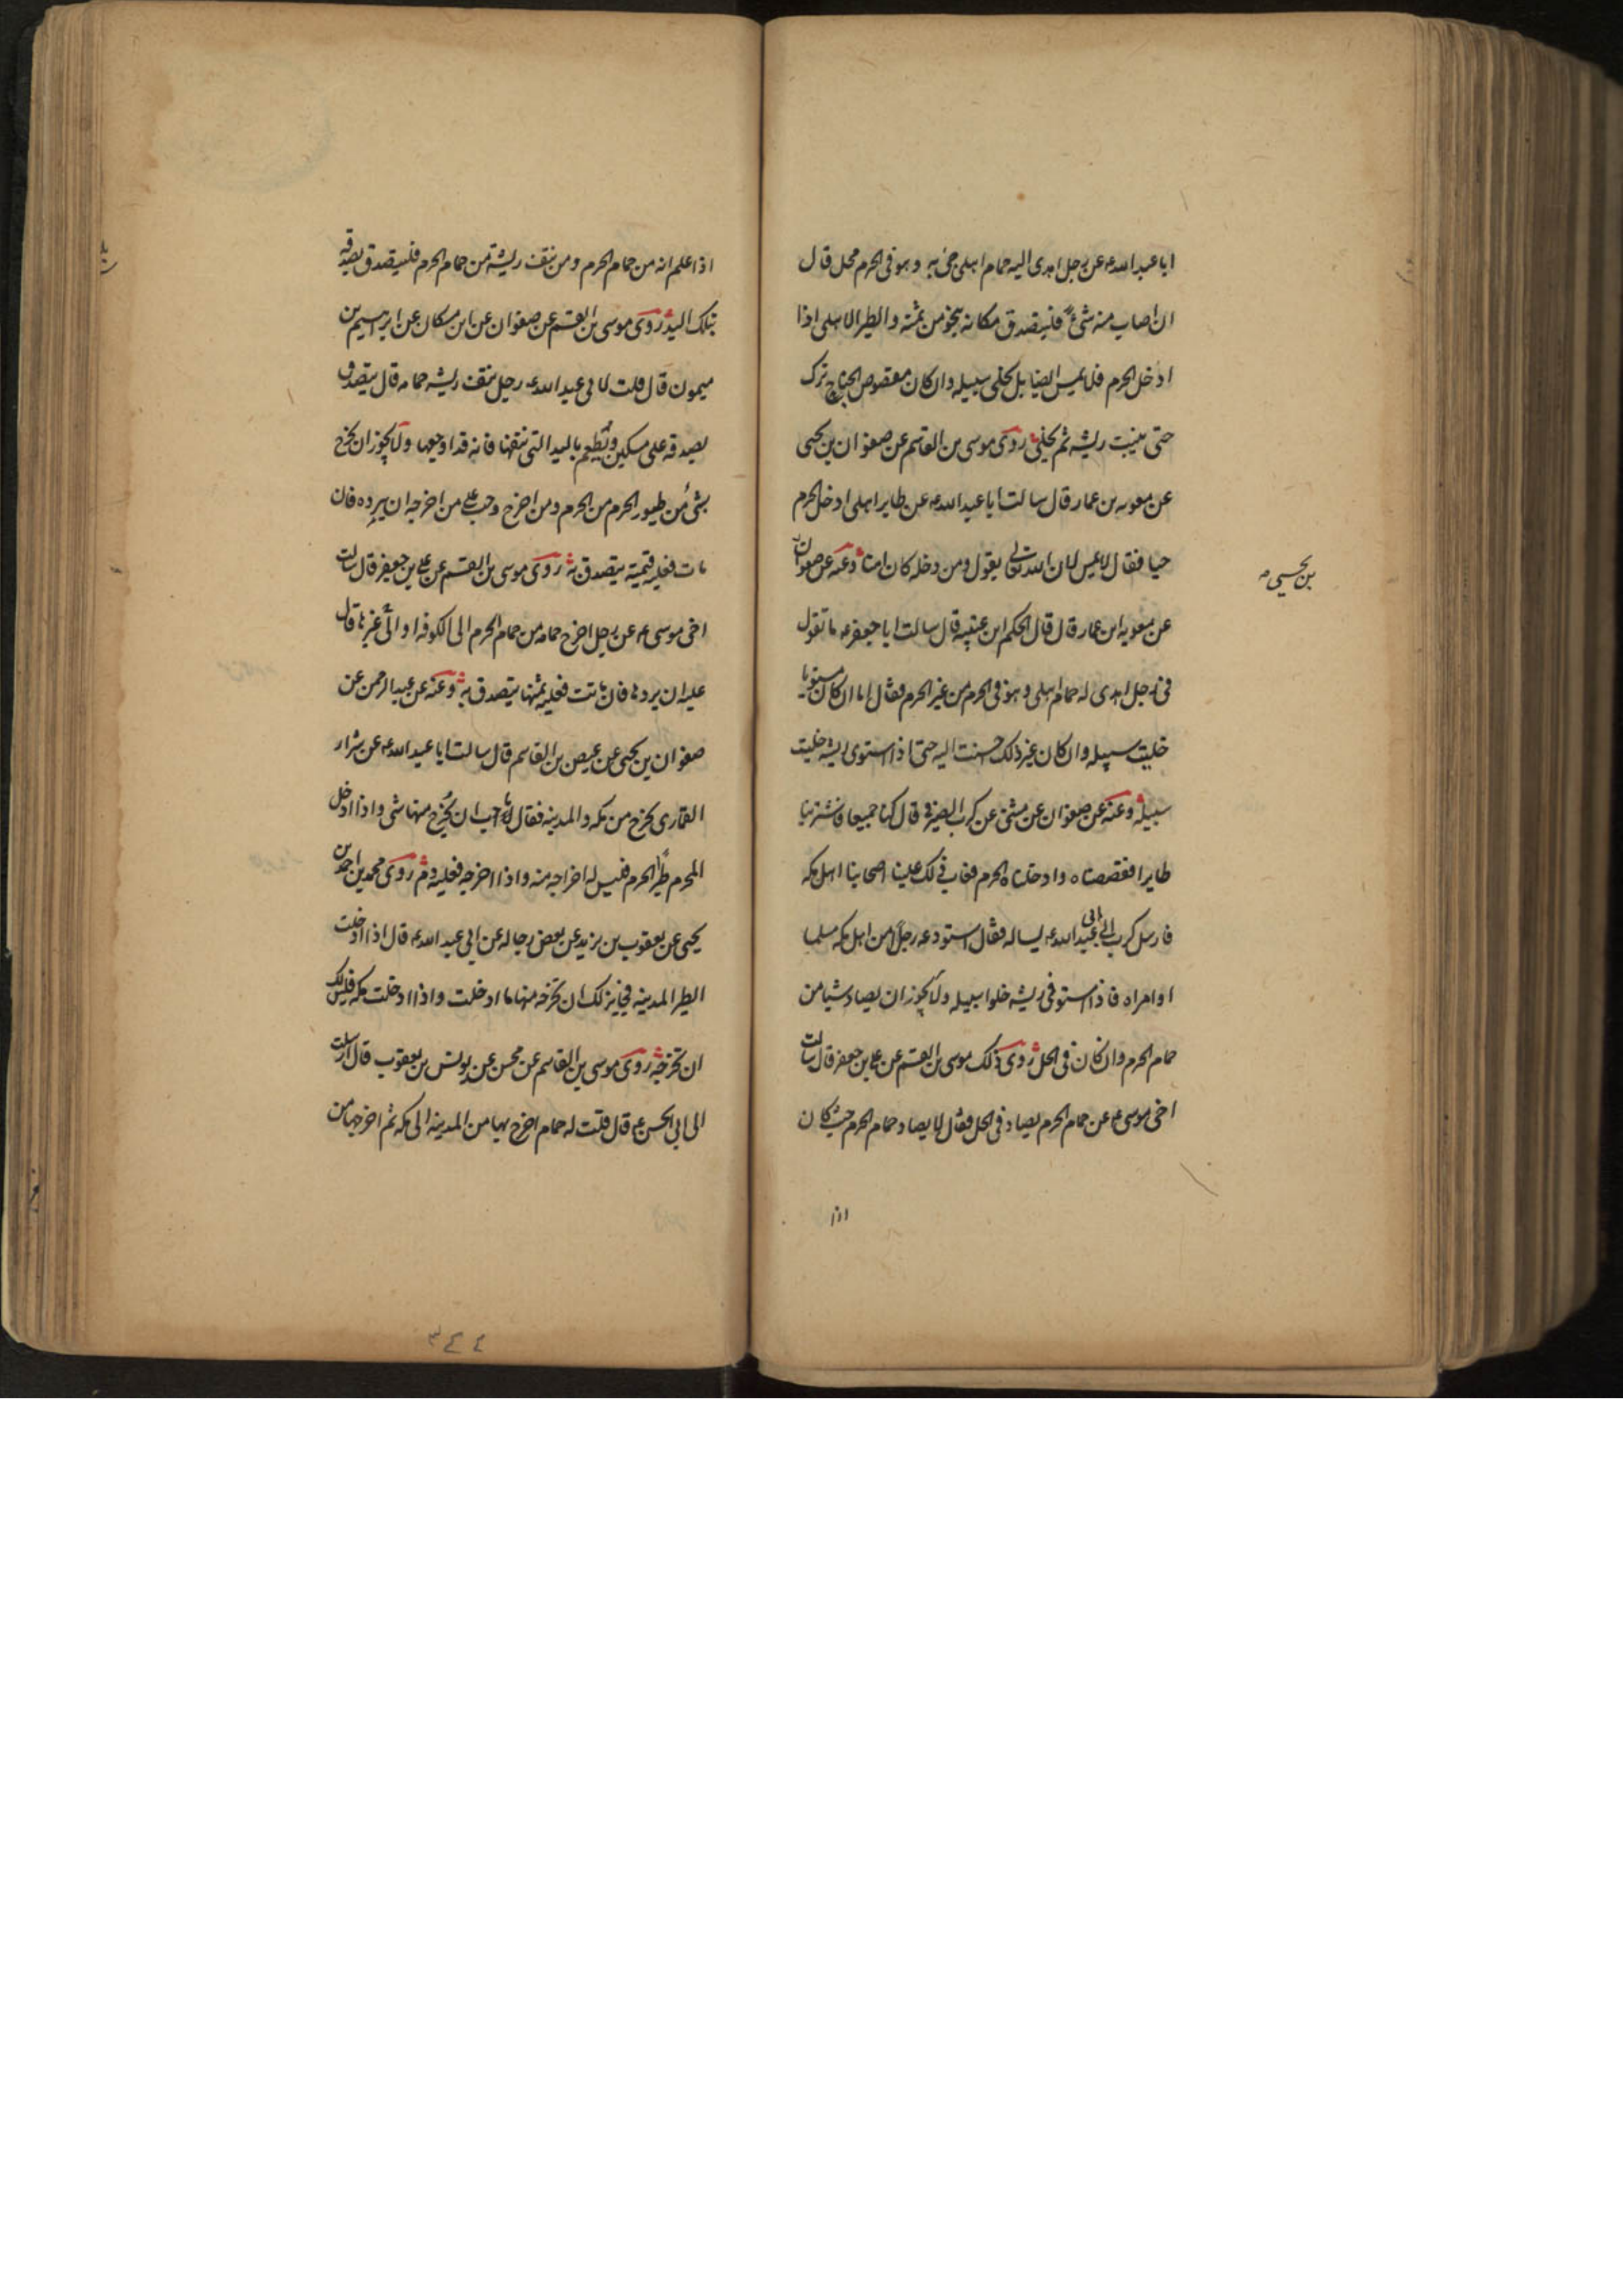 ابا عبد الله ع عن رجل اهدى اليه حمام اهلى جئ به و هو فى الحرم محل قال
ان اصاب منه شئ فليتصدق مكانه بنحو من ثمنه و الطير الاهلى اذا
ادخل الحرم فلا يمس ايضا بل يخلى سبيله وان كان مقصوص الجناح ترك
حتى ينبت ريشه ثم يخلى روى موسى بن القاسم عن صفوان بن يحيى
عن معويه بن عمار قال سالت ابا عبد الله ع عن طاير اهلى ادخل الحرم
حيا فقال لا يمس لان الله تعالى يقول ومن دخله كان امنا وعنه عن صفوان
بن يحيى
عن معويه ابن عمار قال قال الحكم ابن عتيبه قال سالت ابا جعفر ع ما تقول
فى رجل اهدى له حمام اهلى و هو فى الحرم من غير الحرم فقال اما ان كان مستويا
خليت سبيله وان كان غير ذلك احسنت اليه حتى اذا استوى ريشه خليت
سبيله وعنه عن صفوان عن مثنى عن كرب الصيرفى قال كنا جميعا فاشترينا
طايرا فقصصناه وادخلناه الحرم فعاب ذلك علينا اصحابنا اهل مكه
فارسل كرب الى ابى عبد الله ع يساله فقال استودعه رجلا من اهل مكه مسلما
او امراه فاذا استوفى ريشه خلوا سبيله ولا يجوز ان يصاد شيا من
حمام الحرم وان كان فى الحل روى ذلك موسى بن القسم عن على بن جعفر قال سالت
اخى موسى ع عن حمام الحرم يصاد فى الحل فقال لا يصاد حمام الحرم حيث كان
اذا
اذا علم انه من حمام الحرم ومن نتف ريشه من حمام الحرم فليتصدق بصدقه
بتلك اليد روى موسى بن القسم عن صفوان عن ابن مسكان عن ابرهيم بن
ميمون قال قلت لابى عبد الله ع رجل نتف ريشه حمامه قال يتصدق
بصدقه على مسكين ويطعم باليد التى نتفها فانه قد اوجعها ولا يجوز ان يخرج
بشئ من طيور الحرم من الحرم ومن اخرج وجب على من اخرجه ان يرده فان
مات فعليه قيمته يتصدق به روى موسى بن القسم عن على بن جعفر قال سالت
اخى موسى ع عن رجل اخرج حمامه من حمام الحرم الى الكوفه او الى غيرها قال
عليه ان يردها فان ماتت فعليه ثمنها يتصدق به وعنه عن عبد الرحمن عن
صفوان بن يحيى عن عيص بن القاسم قال سالت ابا عبد الله ع عن شرار
القمارى يخرج من مكه والمدينه فقال ما احب ان يخرج منها شى واذا ادخل
المحرم طيرا الحرم فليس له اخراجه منه واذا اخرجه فعليه دم روى محمد بن احمد بن
يحيى عن يعقوب بن يزيد عن بعض رجاله عن ابى عبد الله ع قال اذا ادخلت
الطير المدينه فجايز لك ان تخرجه منها ما ادخلت واذا ادخلت مكه فليس لك
ان تخرجه روى موسى بن القاسم عن محسن عن يونس بن يعقوب قال ارسلت
الى ابى الحسن ع قال قلت له حمام اخرج بها من المدينه الى مكه ثم اخرجها من
٣٤٤